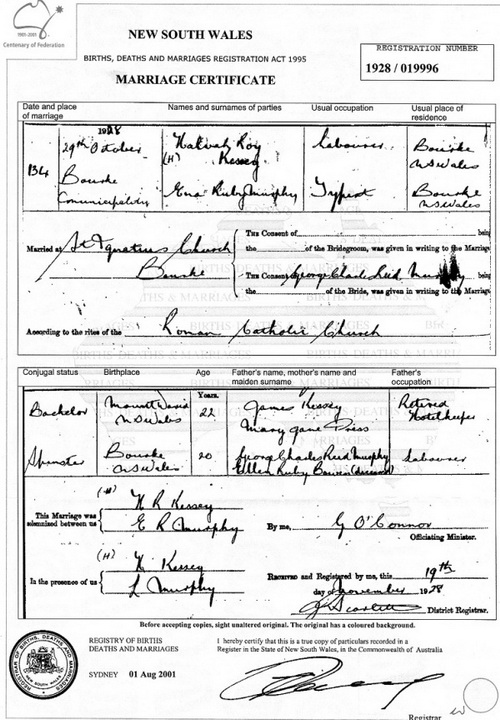 1901-2001
Centenary of Federation
NEW SOUTH WALES
BIRTHS, DEATHS AND MARRIAGES REGISTRATION ACT 1995
MARRIAGE CERTIFICATE
REGISTRATION NUMBER
1928 / 019996
Date and place of marriage
Names and surnames of parties
Usual occupation
Usual place of residence
134
1928
29th October
Bourke
Roy
(H) Kessey
Labourer
Bourke
N.S. Wales
Ena Ruby Murphy
Typist
Bourke
N.S. Wales
Married at St Ignatius Church
Bourke
THE Consent of being
the of the Bridegroom, was given in writing to the Marriage
THE Consent George Charles Reid Murphy being
the of the Bride, was given in writing to the Marriage
According to the rites of the Roman Catholic Church
Conjugal status
Birthplace
Age
Father's name, mother's name and maiden surname
Father's occupation
Years.
Bachelor
Mount
N.S. Wales
22
James Kessey
Mary Jane
Retired
Hotelkeeper
Spinster
Bourke
N.S. Wales
20
George Charles Reid Murphy
Ellen Ruby Bowen (deceased)
Labourer
This Marriage was solemnized between us
(H)
H R Kessey
E R Murphy
By me, G O'Connor
Officiating Minister.
In the presence of us
(H)
K Kessey
L Murphy
RECEIVED and Registered by me, this 19th
day of November 1928
J Scarlett District Registrar.
Before accepting copies, sight unaltered original. The original has a coloured background.
REGISTRY OF BIRTHS
DEATHS AND MARRIAGES
SYDNEY 01 Aug 2001
I hereby certify that this is a true copy of particulars recorded in a
Register in the State of New South Wales, in the Commonwealth of Australia
Registrar